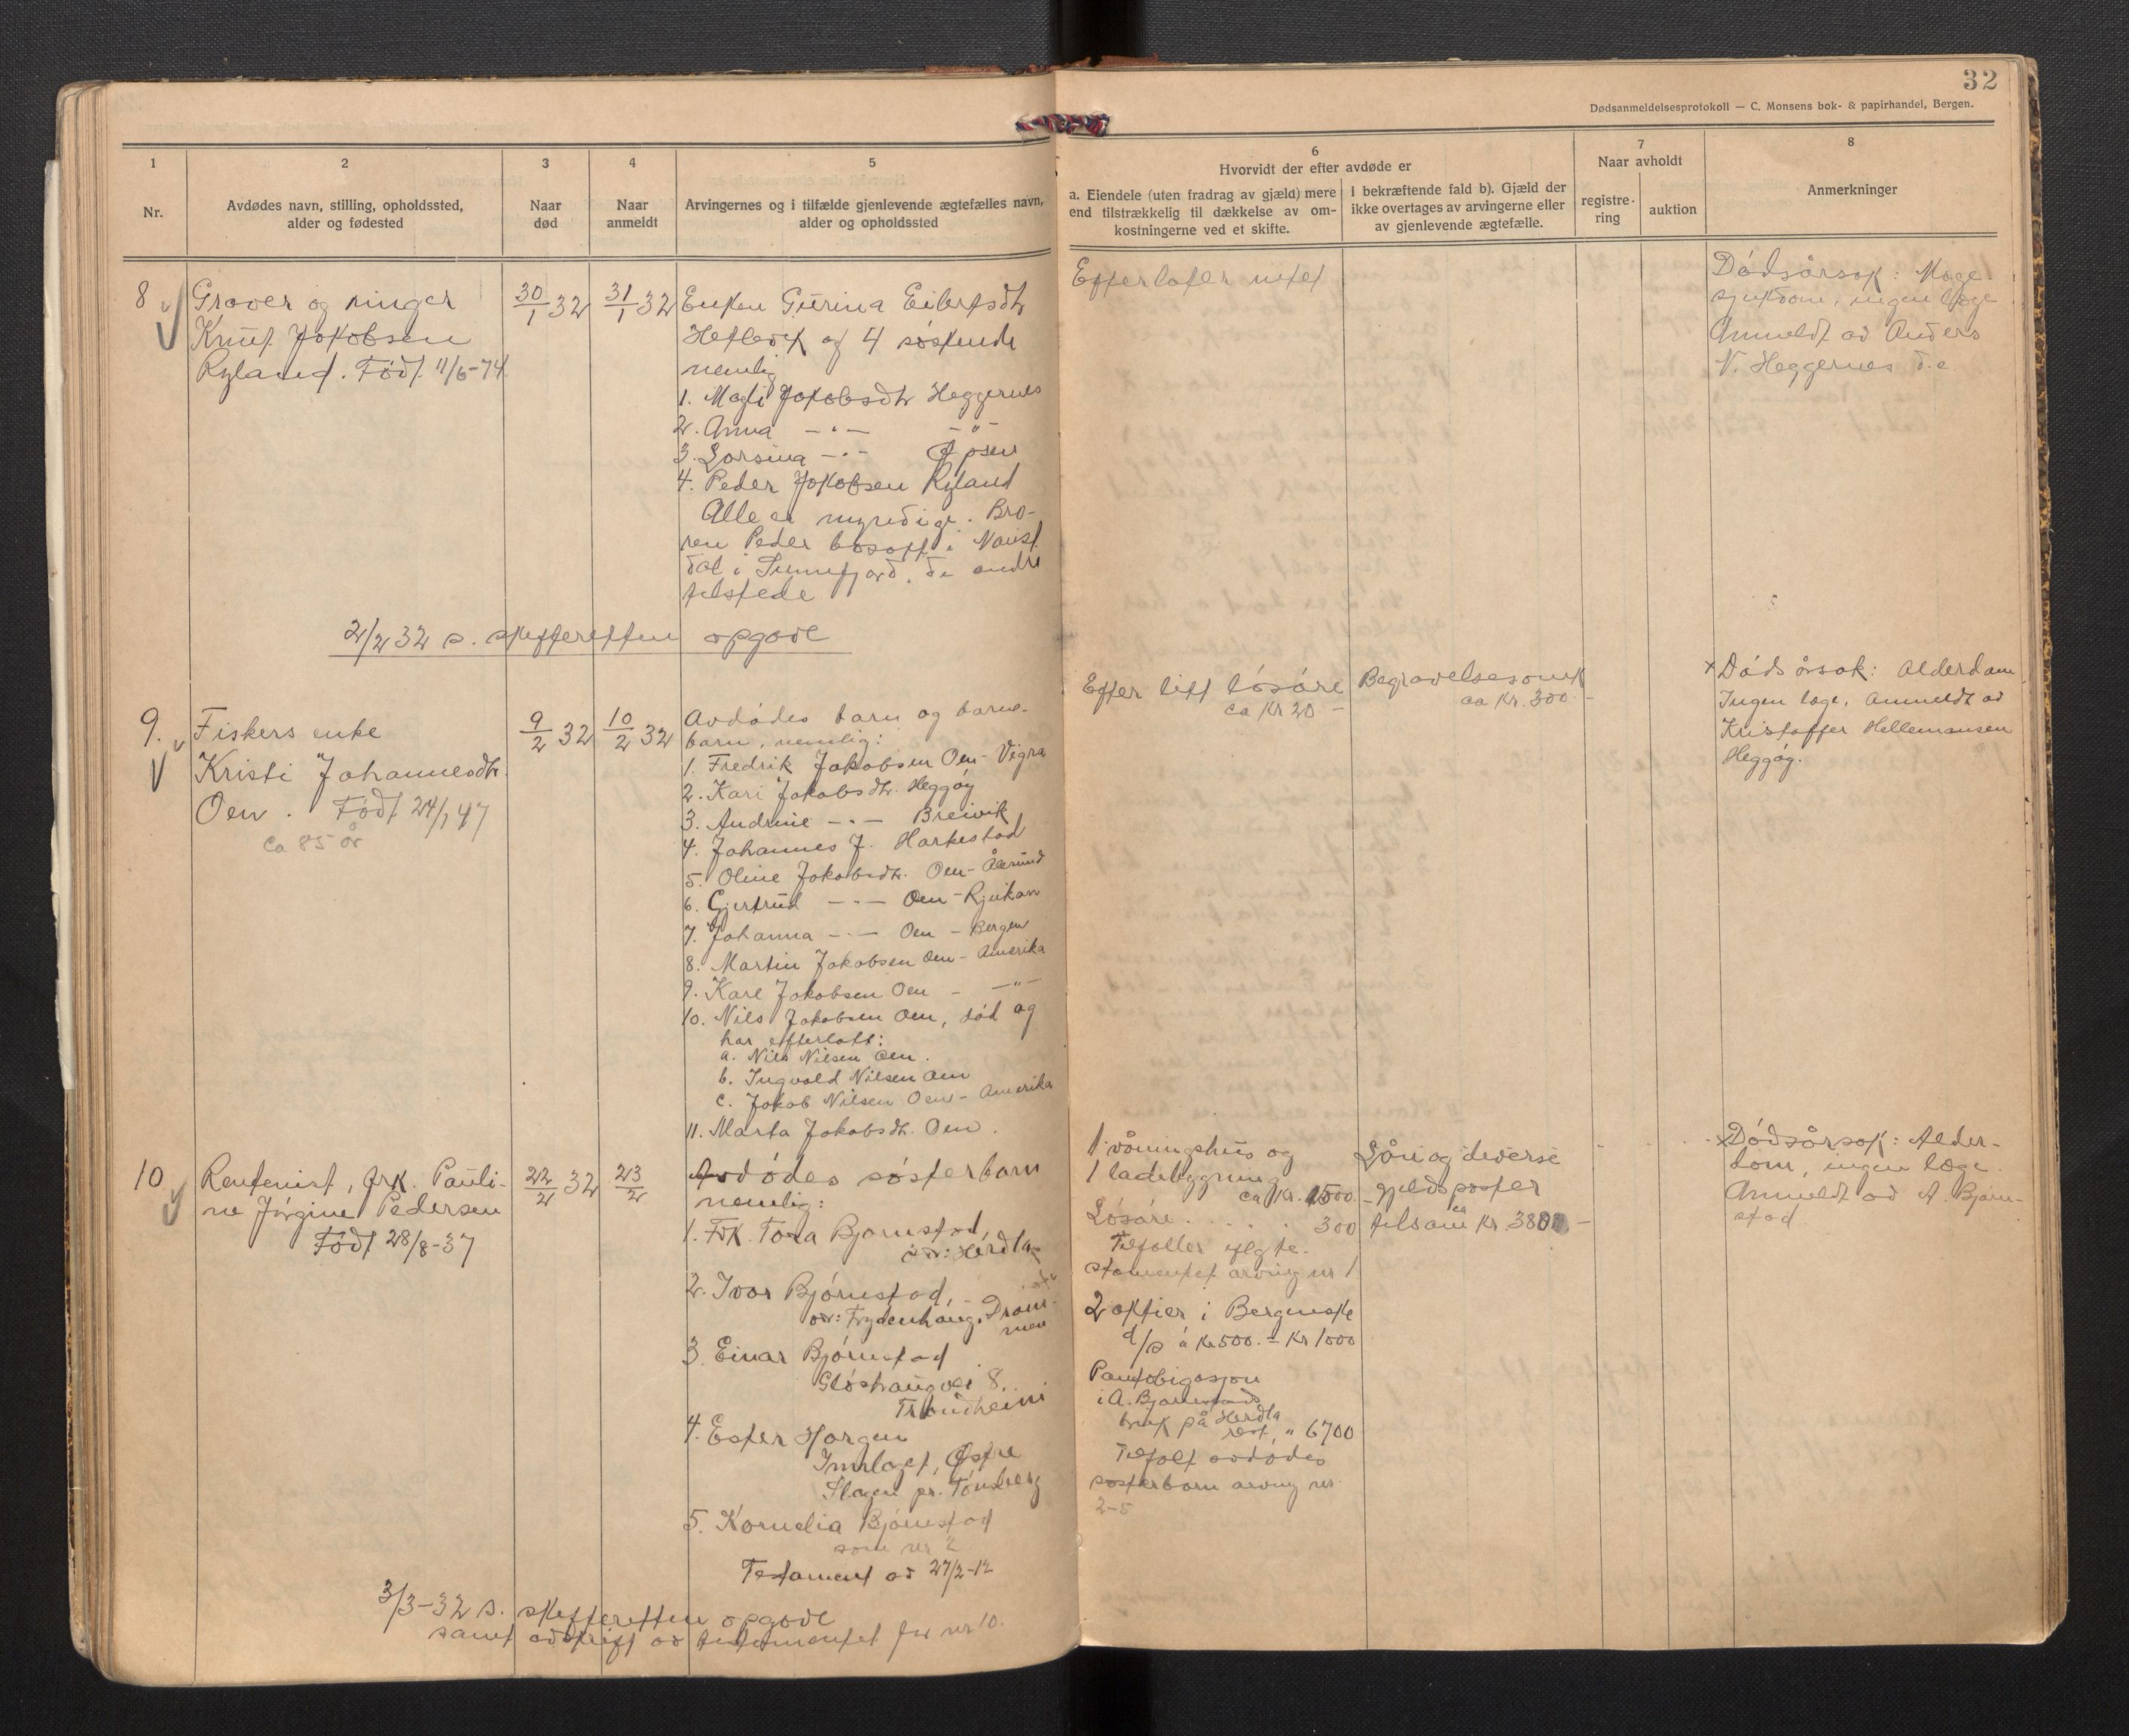 32
Dødsanmeldelsesprotokoll — C. Monsens bok- & papirhandel, Bergen.
1
Nr.
2
Avdødes navn, stilling, opholdssted,
alder og fødested
3
Naar
død
4
Naar
anmeldt
5
Arvingernes og i tilfælde gjenlevende ægtefælles navn,
alder og opholdssted
6
Hvorvidt der efter avdøde er
a. Eiendele (uten fradrag av gjæld) mere
end tilstrækkelig til dækkelse av om-
kostningerne ved et skifte.
I bekræftende fald b). Gjæld der
ikke overtages av arvingerne eller
av gjenlevende ægtefælle.
7
Naar avholdt
registre-
ring
auktion
8
Anmerkninger
8
Graver og ringer
Knut Jakobsen
Ryland. Født 11/6-74
30/1 32
31/1 32
Enken Gurina Eilertsdtr
Hetlevik og 4 søskende
nemlig
1. Magli Jakobsdtr Heggernes
2. Anna —"— —"—
3. Lorsina —"— Apsen
4. Peder Jakobsen Ryland
Alle er myndige. Bro-
ren Peder bosatt i Naust
dal i Sunnfjord, de andre
tilstede
Efterlater intet
Dødsårsak: Mage-
sjukdom, ingen læge
Anmeldt av Anders
N. Heggernes d.e
2/2 32 s. skifteretten opgave
9.
Fiskers enke
Kristi Johannesdtr.
Oen. Født 24/1 47
ca 85 år
9/2 32
10/2 32
Avdødes barn og barne-
barn, nemlig:
1. Fredrik Jakobsen Oen - Vigra
2. Kari Jakobsdtr. Heggøy
3. Andrine —"— Breivik
4. Johannes J. Harkestad
5. Oline Jakobsdtr. Oen - Ålesund
6. Gjertrud —"— Oen - Rjukan
7. Johanna —"— Oen - Bergen
8. Martin Jakobsen Oen - Amerika
9. Karl Jakobsen Oen - —"—
10. Nils Jakobsen Oen, død og
har efterlatt:
a. Nils Nilsen Oen.
b. Ingvald Nilsen Oen
c. Jakob Nilsen Oen - Amerika
11. Marta Jakobsdtr. Oen.
Efter litt løsøre
ca Kr 20.—
Begravelsesomk
ca Kr. 300.—
x Dødsårsak: Alderdom
Ingen læge, Anmeldt av
Kristoffer Hellemansen
Heggøy.
10
Rentenist, frk. Pauli-
ne Jørgine Pedersen
Født 28/8-37
22/2 32
23/2
Avdødes søsterbarn
nemlig:
1. Frk. Tora Bjørnstad,
adr: Herdla
2. Ivar Bjørnstad,
adr: Frydenhaug. Dram-
men
3. Einar Bjørnstad
Gløshaugvei 8.
Trondheim
4. Ester Horgen
Innlaget, Østre
Slagen pr. Tønsberg
5. Kornelia Bjørnstad
som nr 2
Testament av 27/2-12
1 våningshus og
1 ladebygning
ca Kr. 1500.—
Løsøre . . . . . 300
Tilfaller iflg te-
stamentet arving nr 1
2 aktier i Bergenske
d/s á kr 500.- = Kr 1000
Pantobligasjon
i A. Bjørnstads
bruk på Herdla
rest, " 6700
Tilfalt avdødes
søsterbarn arving nr
2-5
Lån og diverse
gjeldsposter
tilsam kr 3800.—
x Dødsårsak: Alder-
dom, ingen læge.
Anmeldt av A. Bjørn-
stad
3/3-32 s. skifteretten opgave
samt avskrift av testamentet for nr 10.